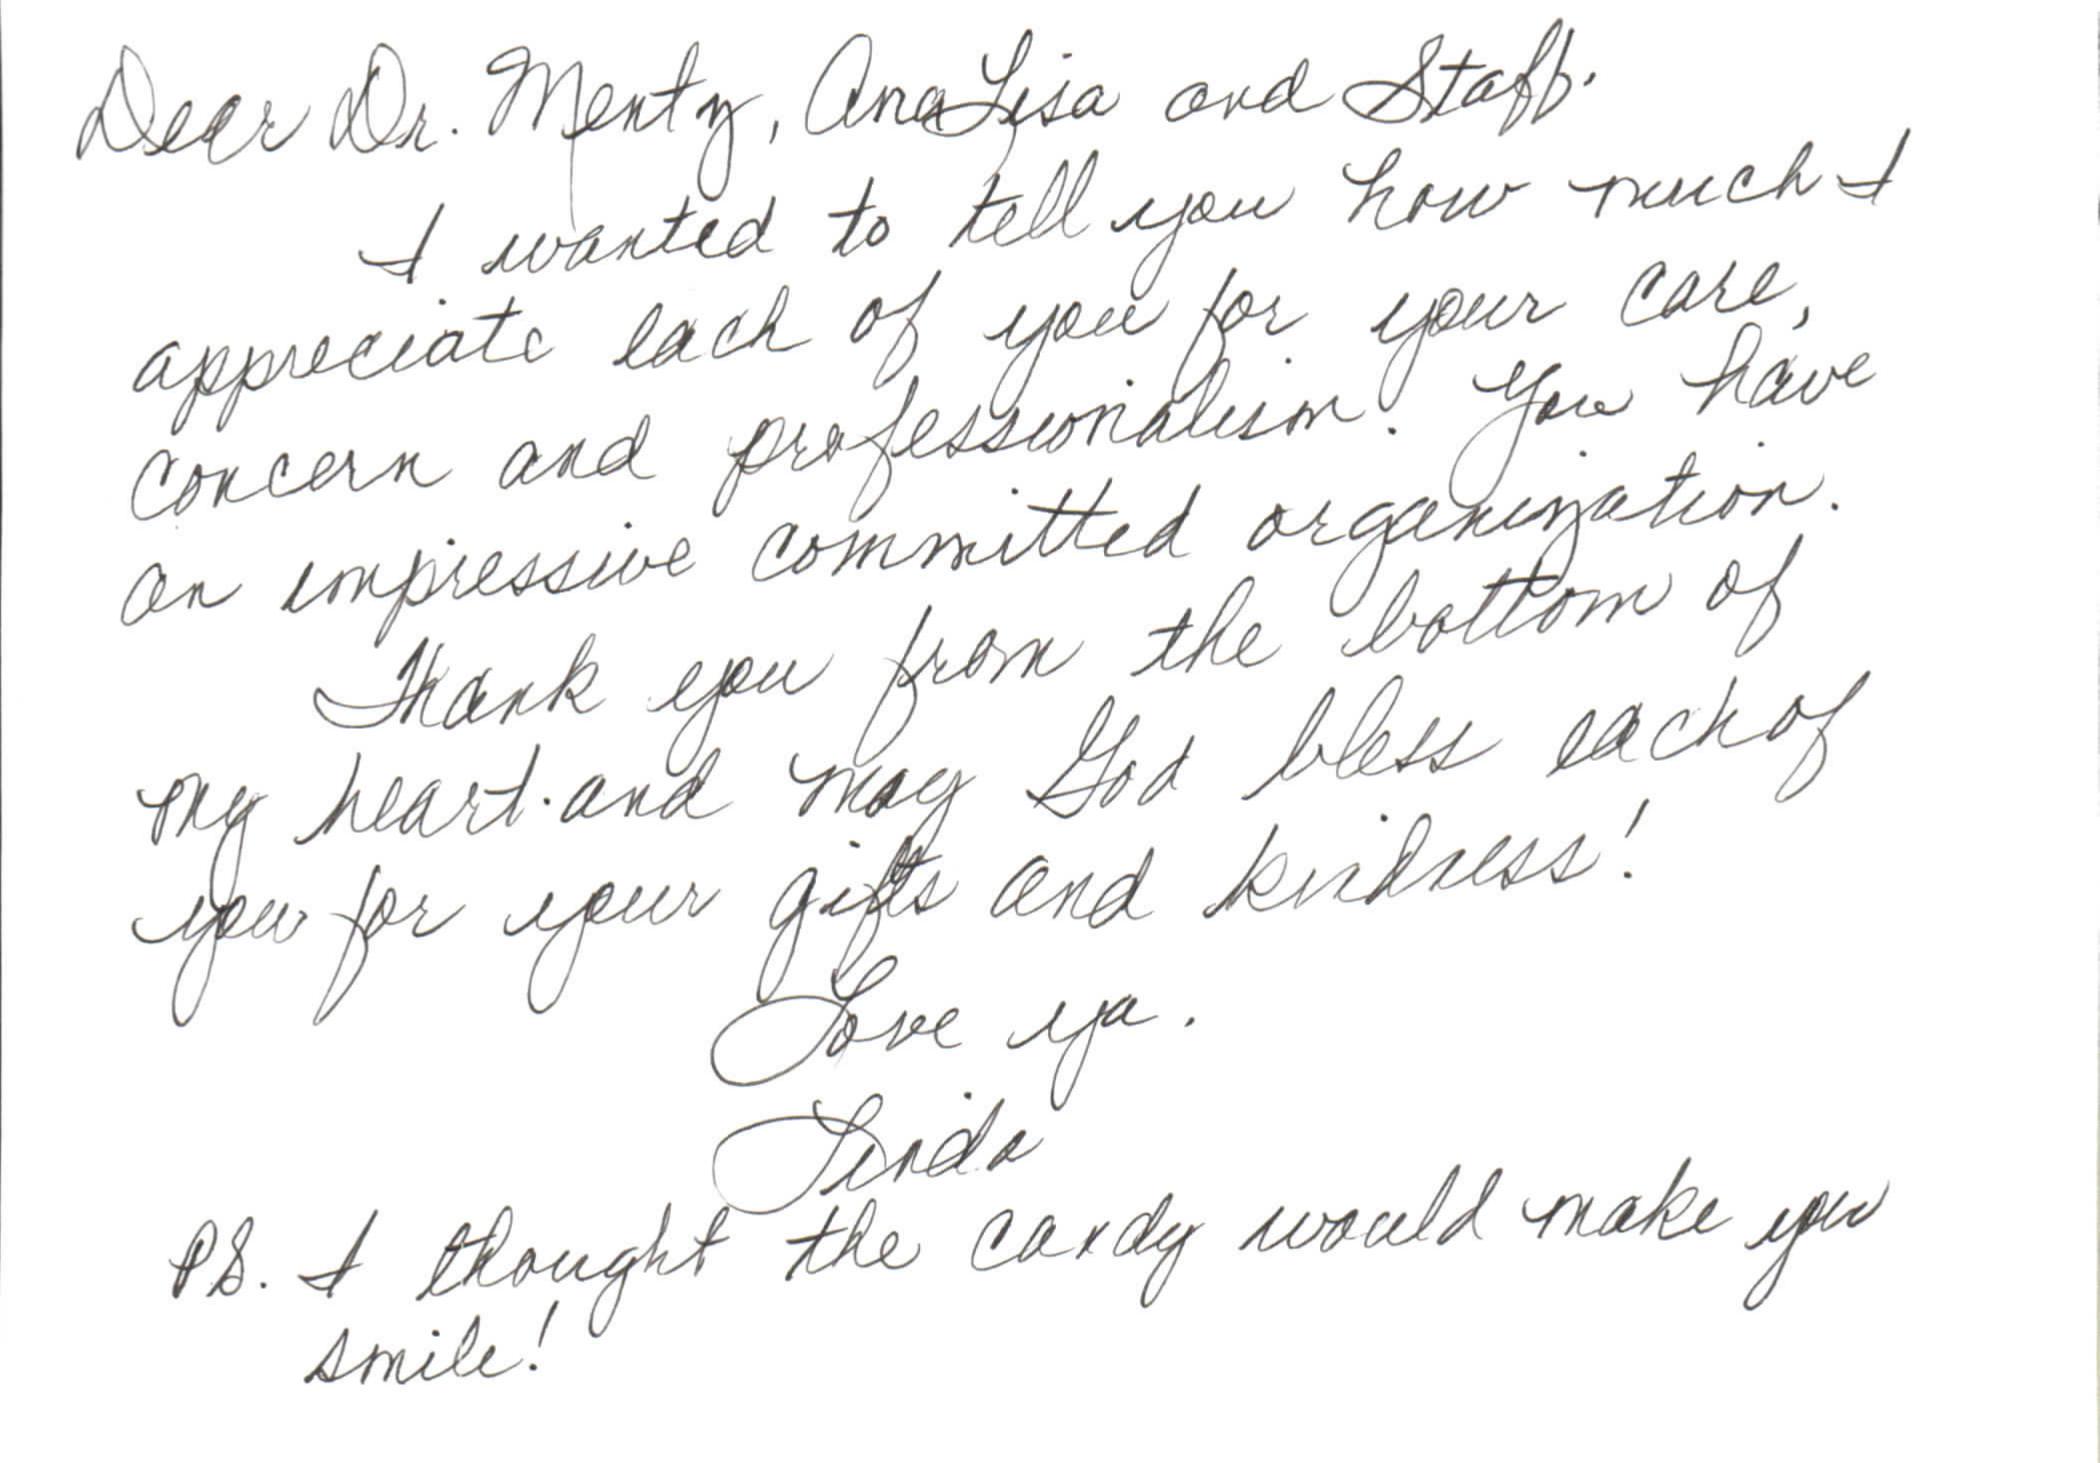 Dear Dr. Mentz, AnaLisa and Staff.
I wanted to tell you how much I
appreciate each of you for your care,
concern and professionalism. You have
an impressive committed organization.
Thank you from the bottom of
my heart and may God bless each of
you for your gifts and kindness!
Love ya.
Linda
PS. I thought the candy would make you
smile!